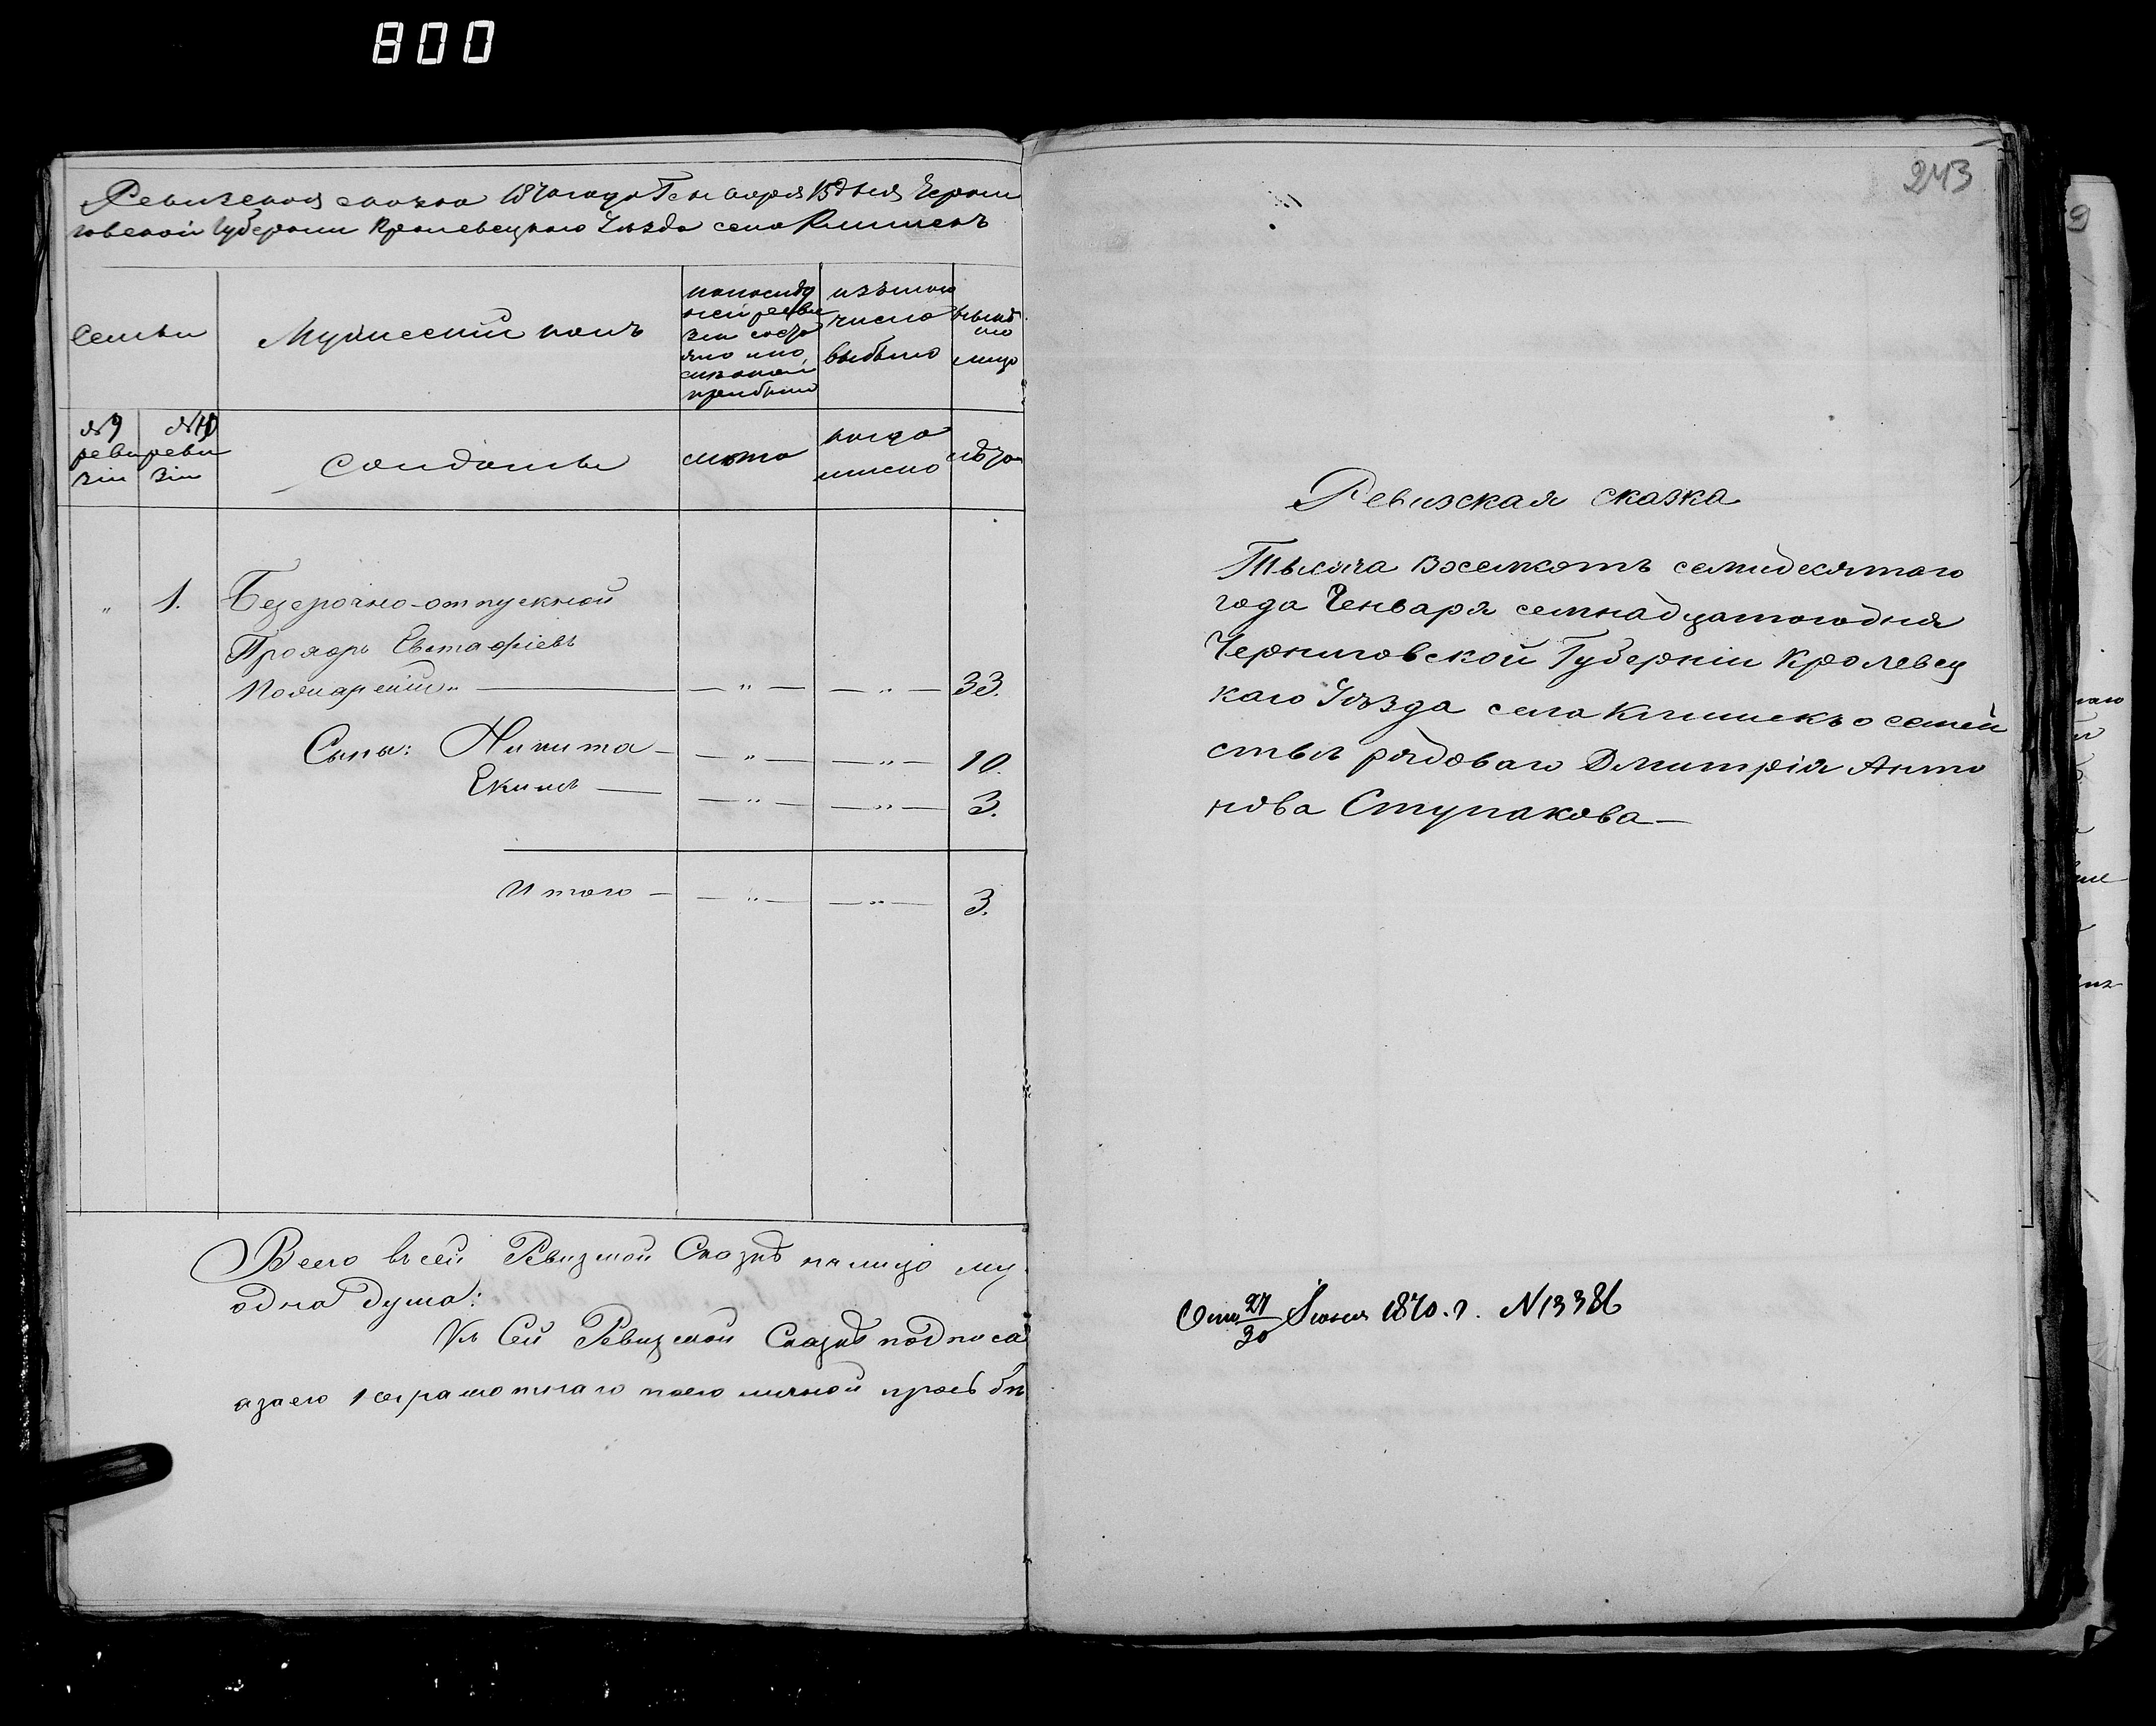 800
Ревизская сказка 1870 года Генваря 15 дня Черни
говской Губернии Кролевецкаго Уѣзда села Клишекъ
Семьи
Мужескій полъ
по послѣд
ней реви
зіи состо
яло и по
слѣ оной
прибыло
изъ того
числа
выбыло
нынѣ
на
лицо
№ 9
реви
зіи
№ 10
реви
зіи
Солдаты
лѣта
когда
имено
лѣта
" 1. Безсрочно-отпускной
Прохоръ Евстафіевъ
— " — — " — 33.
Сыны: Никита — — " — — " — 10.
Екимъ — — " — — " — 3.
Итого — — " — — " — 3.
Всего въ сей Ревизской Сказкѣ на лицо му
одна душа:
Къ Сей Ревизской Сказкѣ подписа
а за его неграмотнаго по его личной прозьбѣ
243
Ревизская сказка
Тысяча восемсотъ семидесятаго
года Генваря семнадцатого дня
Черниговской Губерніи Кролевец
каго Уѣзда села Клишекъ о семей
ствѣ рядоваго Дмитрія Анто
нова Ступакова —
Отъ 27/30 Іюня 1870. г. N 13386